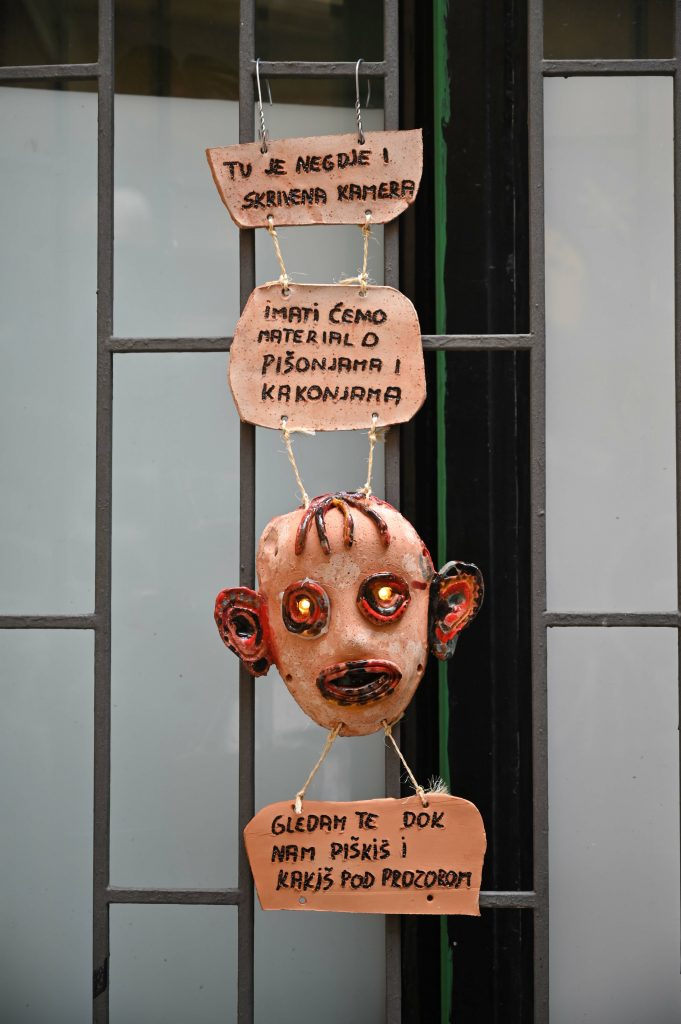 TU JE NEGDJE I
SKRIVENA KAMERA
IMATI ĆEMO
MATERIAL O
PIŠONJAMA I
KAKONJAMA
GLEDAM TE DOK
NAM PIŠKIŠ I
KAKIŠ POD PROZOROM